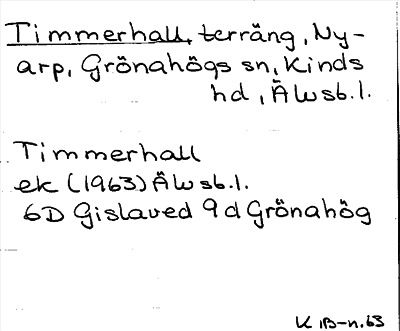 Timmerhall, terräng, Ny-
arp, Grönahögs sn, Kinds
hd, Älvsb.l.
Timmerhall
ek (1963) Älvsb.l.
6D Gislaved 9d Grönahög